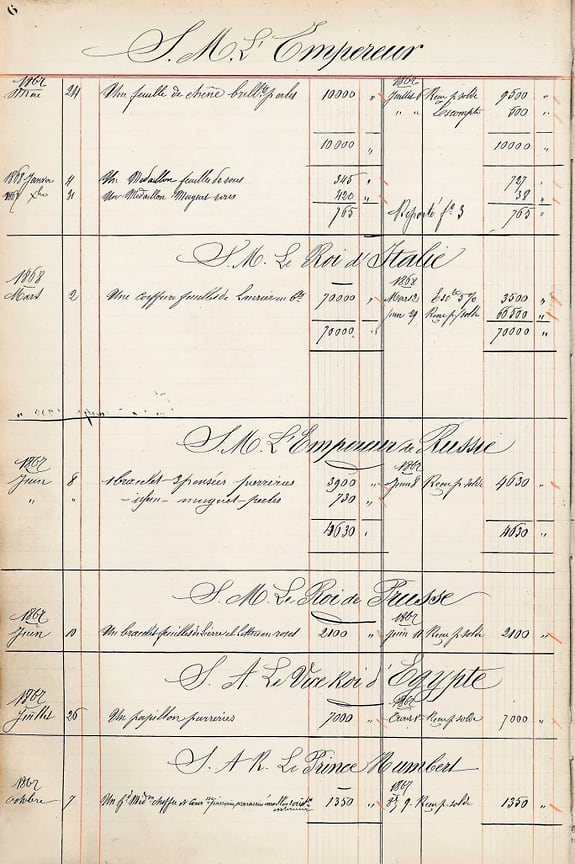 6
S. M. L'Empereur
1867 1867
Mai 24 Une feuille de chêne brill. perles 10000 " Juillet 6 Remp. solde 9500 "
" " Escompte 500 "
10000 " 10000 "
1868 Janvier 4 Un Médaillon feuilles de roses 345 " 727 "
1867 Xbre 31 Un Médaillon Muguet roses 420 " 38 "
765 " Reporté fo 3 765 "
S. M. Le Roi d'Italie
1868 1868
Mars 2 Une coiffure feuilles de Laurier en bts 70000 " Mars 2 Escte 5% 3500 "
Juin 29 Remp. solde 66500 "
70000 " 70000 "
S. M. L'Empereur de Russie
1867 1867
Juin 8 1 bracelet 3 pensées pierreries 3900 " Juin 8 Remp. solde 4630 "
" " muguet perles 730 "
4630 " 4630 "
S. M. Le Roi de Prusse
1867 1867
Juin 10 Un bracelet feuilles de lierre et Lettres en roses 2100 " Juin 11 Remp. solde 2100 "
S. A. Le Vice Roi d'Egypte
1867 1867
Juillet 26 Un papillon pierreries 7000 " Remp. solde 7000 "
S. A. R. Le Prince Humbert
1867 1867
Octobre 7 Un Médon chiffre de 1350 " 8bre 9 Remp. solde 1350 "